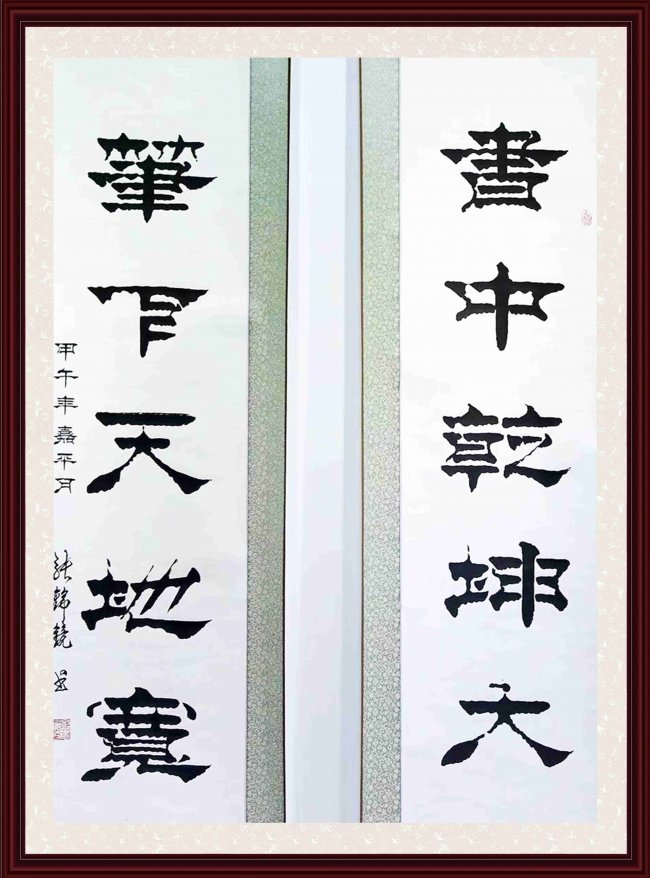 書中乾坤大
筆下天地寬
甲午年嘉平月
張錦鏡書